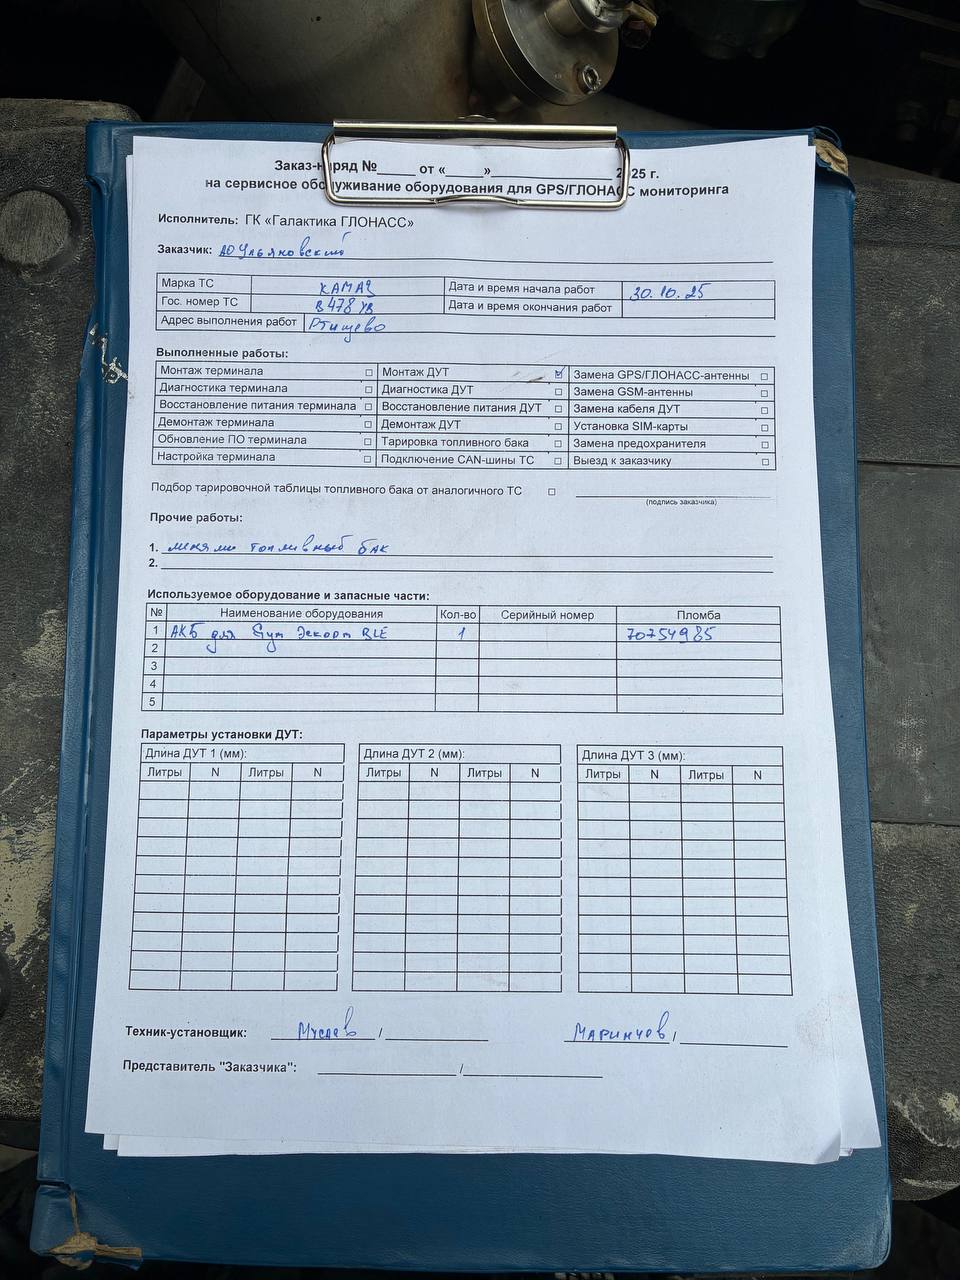 Заказ-наряд №_____ от «_____»________________ 2025 г.
на сервисное обслуживание оборудования для GPS/ГЛОНАСС мониторинга
Исполнитель: ГК «Галактика ГЛОНАСС»
Заказчик: АО Ульяновский
Марка ТС КАМАЗ Дата и время начала работ 30.10.25
Гос. номер ТС В 478 УВ Дата и время окончания работ
Адрес выполнения работ Ртищево
Выполненные работы:
Монтаж терминала ☐ Монтаж ДУТ ☑ Замена GPS/ГЛОНАСС-антенны ☐
Диагностика терминала ☐ Диагностика ДУТ ☐ Замена GSM-антенны ☐
Восстановление питания терминала ☐ Восстановление питания ДУТ ☐ Замена кабеля ДУТ ☐
Демонтаж терминала ☐ Демонтаж ДУТ ☐ Установка SIM-карты ☐
Обновление ПО терминала ☐ Тарировка топливного бака ☐ Замена предохранителя ☐
Настройка терминала ☐ Подключение CAN-шины ТС ☐ Выезд к заказчику ☐
Подбор тарировочной таблицы топливного бака от аналогичного ТС ☐
(подпись заказчика)
Прочие работы:
1. меняли топливный бак
2.
Используемое оборудование и запасные части:
№ Наименование оборудования Кол-во Серийный номер Пломба
1 АКБ для Дут Эскорт BLE 1 70754985
2
3
4
5
Параметры установки ДУТ:
Длина ДУТ 1 (мм): Длина ДУТ 2 (мм): Длина ДУТ 3 (мм):
Литры N Литры N Литры N Литры N Литры N Литры N
Техник-установщик: Мусаев / Маринчев /
Представитель "Заказчика": /